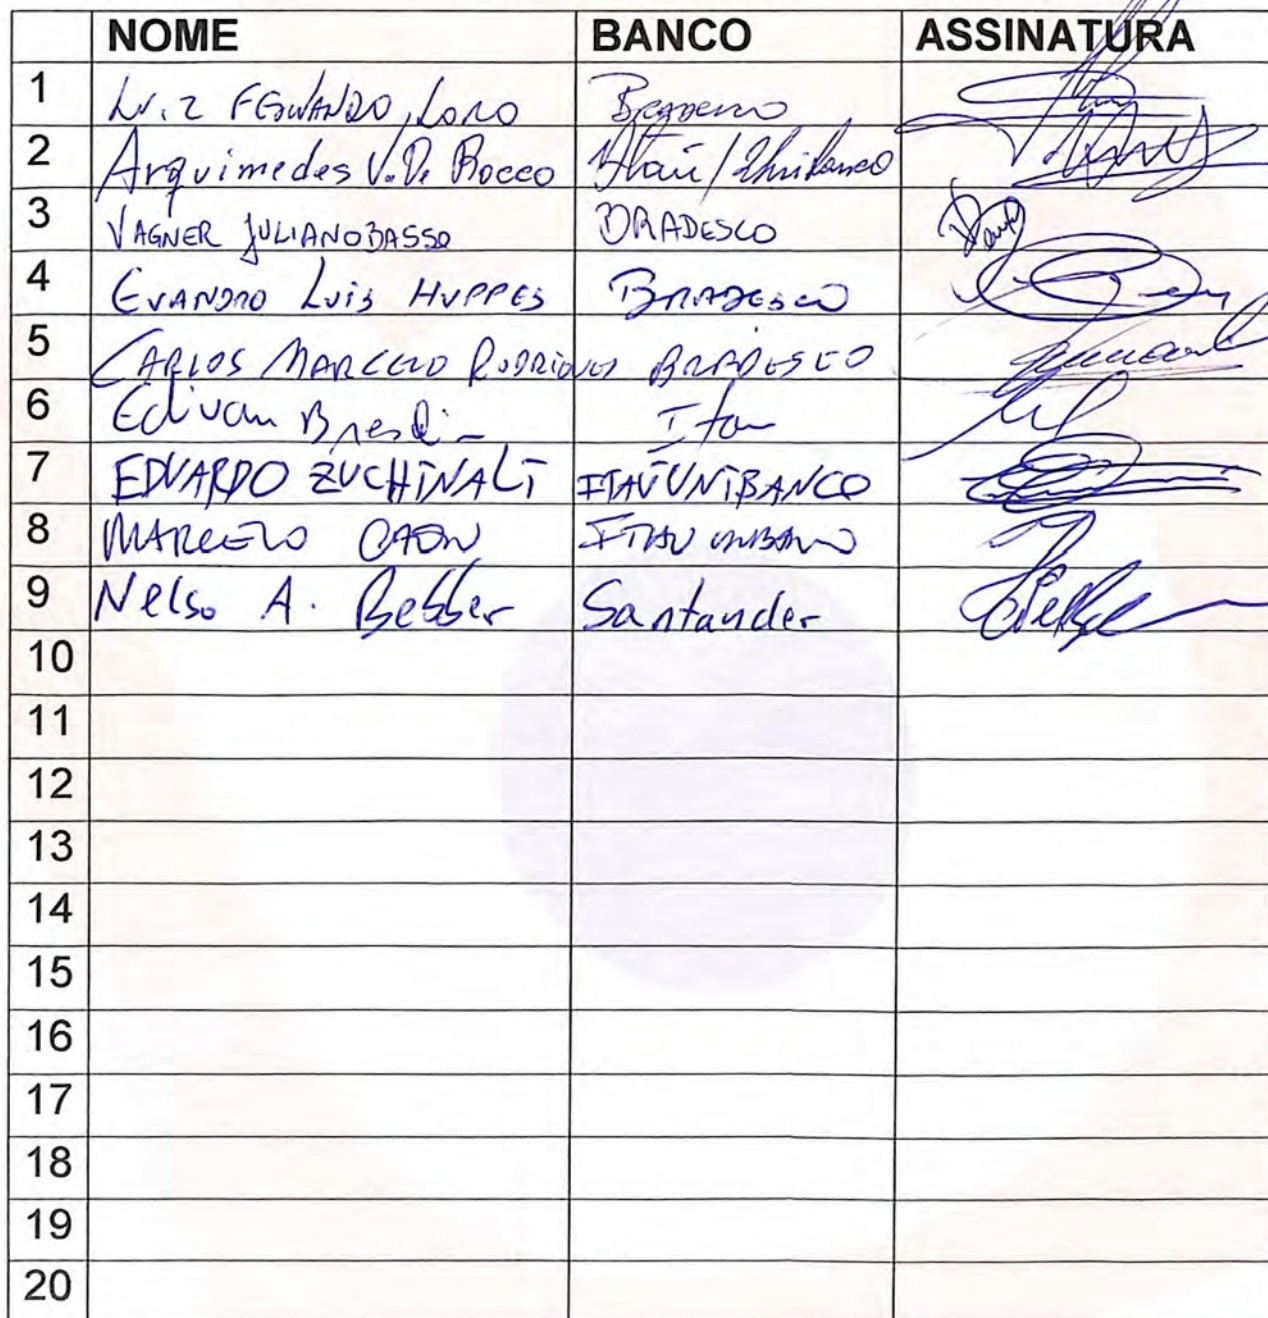 NOME BANCO ASSINATURA
1 Luiz FERNANDO Loro Bradesco
2 Arquimedes V. D. Rocco Itaú/Unibanco
3 VAGNER JULIANO BASSO BRADESCO
4 EVANDRO Luis HUPPES BRADESCO
5 CARLOS MARCELO RODRIGUES BRADESCO
6 Edivan Itau
7 EDUARDO ZUCHINALI ITAÚ UNIBANCO
8 MARCELO ITAU UNIBANCO
9 Nelso A. Bebber Santander
10
11
12
13
14
15
16
17
18
19
20